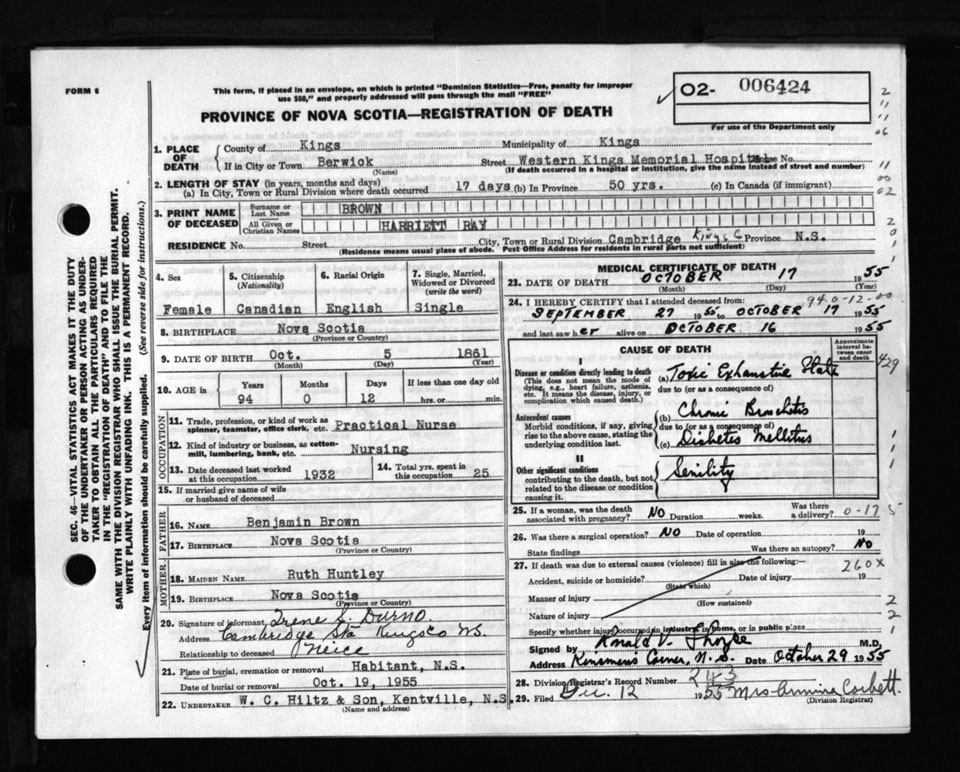 FORM 6
This form, if placed in an envelope, on which is printed "Dominion Statistics—Free, penalty for improper
use $50," and properly addressed will pass through the mail "FREE"
O2- 006424
For use of the Department only
PROVINCE OF NOVA SCOTIA—REGISTRATION OF DEATH
1. PLACE OF DEATH
County of Kings Municipality of Kings
If in City or Town Berwick Street Western Kings Memorial Hospital House No.
(Name) (If death occurred in a hospital or institution, give the name instead of street and number)
2. LENGTH OF STAY (in years, months and days)
(a) In City, Town or Rural Division where death occurred 17 days (b) In Province 50 yrs. (c) In Canada (if immigrant)
3. PRINT NAME OF DECEASED
Surname or Last Name BROWN
All Given or Christian Names HARRIETT RAY
RESIDENCE No. Street City, Town or Rural Division Cambridge Kings C Province N.S.
(Residence means usual place of abode. Post Office Address for residents in rural parts not sufficient)
4. Sex
Female
5. Citizenship (Nationality)
Canadian
6. Racial Origin
English
7. Single, Married, Widowed or Divorced (write the word)
Single
8. BIRTHPLACE Nova Scotia
(Province or Country)
9. DATE OF BIRTH Oct. 5 1861
(Month) (Day) (Year)
10. AGE in Years Months Days If less than one day old
94 0 12 hrs. or min.
OCCUPATION
11. Trade, profession, or kind of work as spinner, teamster, office clerk, etc. Practical Nurse
12. Kind of industry or business, as cotton-mill, lumbering, bank, etc. Nursing
13. Date deceased last worked at this occupation 1932
14. Total yrs. spent in this occupation 25
15. If married give name of wife or husband of deceased
FATHER
16. NAME Benjamin Brown
17. BIRTHPLACE Nova Scotia
(Province or Country)
MOTHER
18. MAIDEN NAME Ruth Huntley
19. BIRTHPLACE Nova Scotia
(Province or Country)
20. Signature of informant Irene S. Durno
Address Cambridge Sta Kings Co N.S.
Relationship to deceased Neice
21. Place of burial, cremation or removal Habitant, N.S.
Date of burial or removal Oct. 19, 1955
22. UNDERTAKER W. C. Hiltz & Son, Kentville, N.S.
(Name and address)
MEDICAL CERTIFICATE OF DEATH
23. DATE OF DEATH OCTOBER 17 1955
(Month) (Day) (Year)
24. I HEREBY CERTIFY that I attended deceased from: 940-12-00
SEPTEMBER 27 1955 to OCTOBER 17 1955
and last saw her alive on OCTOBER 16 1955
CAUSE OF DEATH
Approximate interval between onset and death
I
Disease or condition directly leading to death
(This does not mean the mode of dying, e.g., heart failure, asthenia, etc. It means the disease, injury, or complication which caused death.)
(a) Toxic Exhaustive State
due to (or as a consequence of)
Antecedent causes
Morbid conditions, if any, giving rise to the above cause, stating the underlying condition last.
(b) Chronic Bronchitis
due to (or as a consequence of)
(c) Diabetes Mellitus
II
Other significant conditions
contributing to the death, but not related to the disease or condition causing it.
Senility
25. If a woman, was the death associated with pregnancy? NO Duration weeks. Was there a delivery? 0-17 5
26. Was there a surgical operation? NO Date of operation 19
State findings Was there an autopsy? NO
27. If death was due to external causes (violence) fill in also the following:— 260X
Accident, suicide or homicide? Date of injury 19
(State which)
Manner of injury
(How sustained)
Nature of injury
Specify whether injury occurred in industry, in home, or in public place
Signed by Ronald V. Thorpe M.D.
Address Kinsmans Corner, N.S. Date October 29 1955
28. Division Registrar's Record Number 243
29. Filed Dec. 12 1955 Mrs Armina Corbett.
(Division Registrar)
SEC. 46—VITAL STATISTICS ACT MAKES IT THE DUTY
OF THE UNDERTAKER OR PERSON ACTING AS UNDER-
TAKER TO OBTAIN ALL THE PARTICULARS REQUIRED
IN THE "REGISTRATION OF DEATH" AND TO FILE THE
SAME WITH THE DIVISION REGISTRAR WHO SHALL ISSUE THE BURIAL PERMIT.
WRITE PLAINLY WITH UNFADING INK. THIS IS A PERMANENT RECORD.
Every item of information should be carefully supplied. (See reverse side for instructions.)